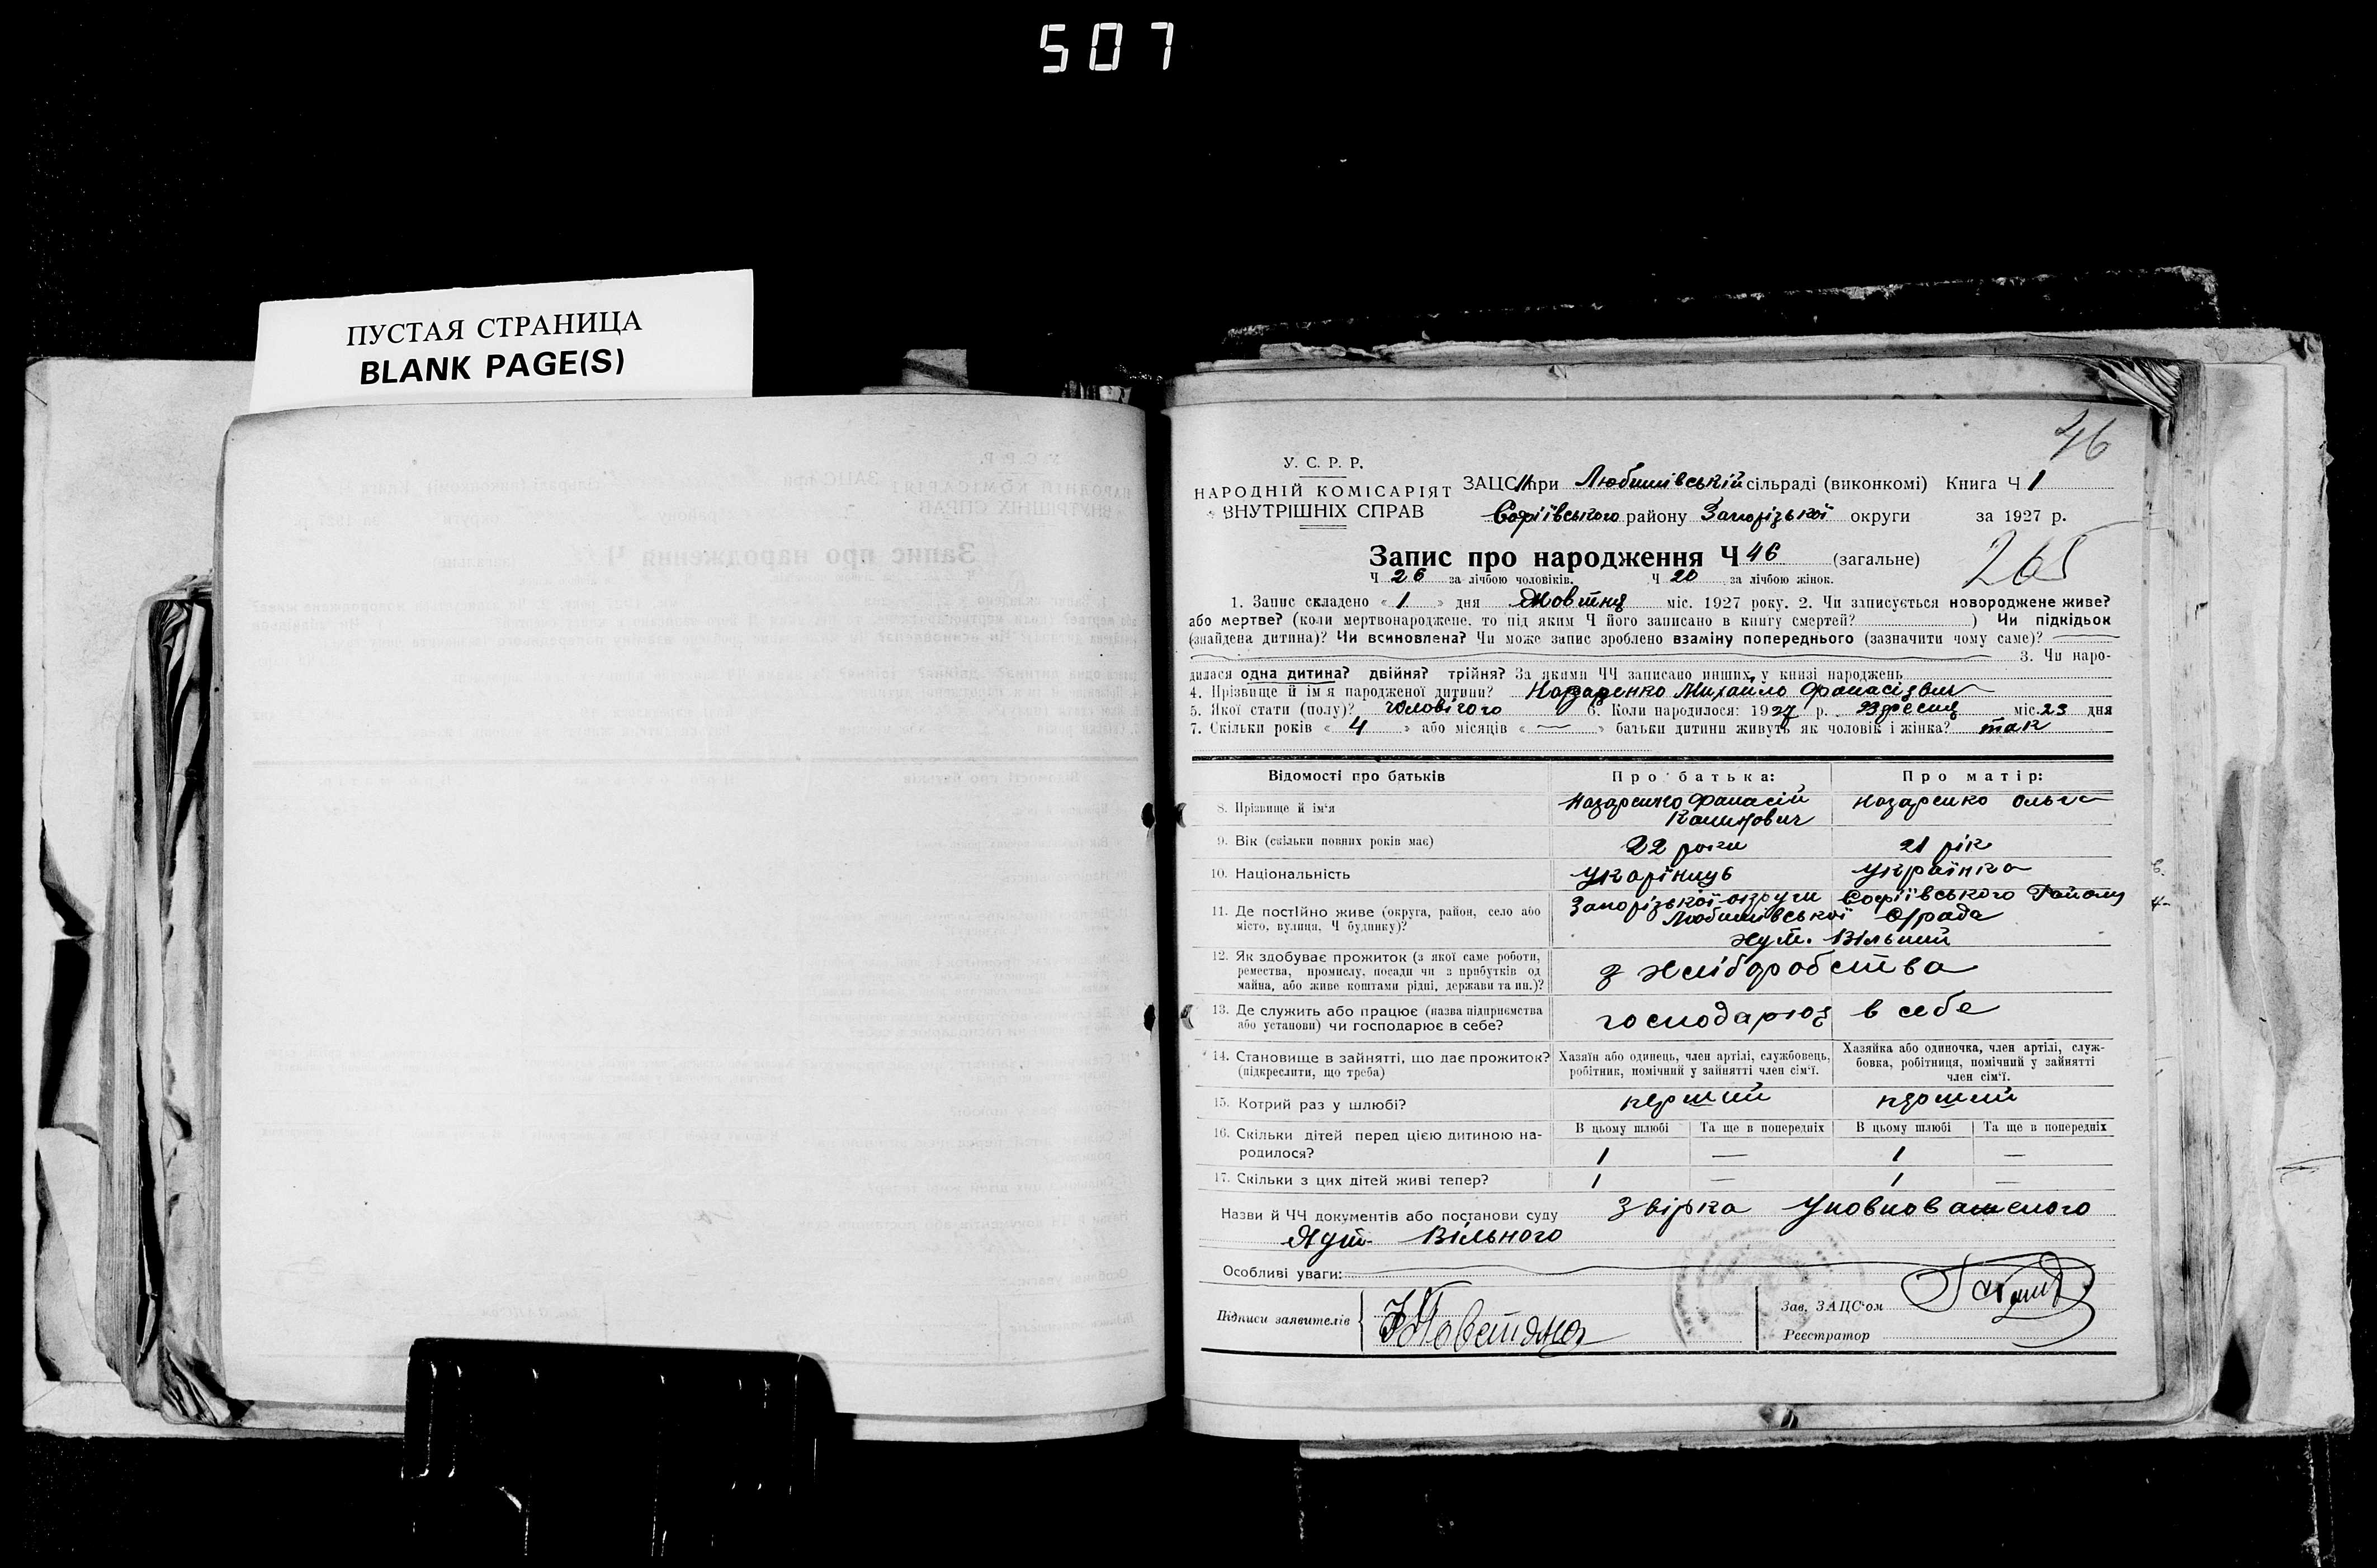 507
ПУСТАЯ СТРАНИЦА
BLANK PAGE(S)
46
У. С. Р. Р.
НАРОДНІЙ КОМІСАРІЯТ
ВНУТРІШНІХ СПРАВ
ЗАЦС при Любимівській сільраді (виконкомі) Книга Ч 1
Софіївського району Запорізької округи за 1927 р.
Запис про народження Ч 46 (загальне)
265
Ч 26 за лічбою чоловіків. Ч 20 за лічбою жінок.
1. Запис складено « 1 » дня Жовтня міс. 1927 року. 2. Чи записується новороджене живе?
або мертве? (коли мертвонароджене, то під яким Ч його записано в книгу смертей? ) Чи підкідьок
(знайдена дитина)? Чи всиновлена? Чи може запис зроблено взаміну попереднього (зазначити чому саме)?
3. Чи наро-
дилася одна дитина? двійня? трійня? За якими ЧЧ записано инших, у книзі народжень
4. Прізвище й ім'я народженої дитини? Назаренко Михайло
5. Якої стати (полу)? чоловічого 6. Коли народилося: 1927 р. Вересня міс. 23 дня
7. Скільки років « 4 » або місяців « — » батьки дитини живуть як чоловік і жінка? так
Відомості про батьків Про батька: Про матір:
8. Прізвище й ім'я Назаренко Фанасій Назаренко Ольга
9. Вік (скільки повних років має) 22 роки 21 рік
10. Національність Українка
11. Де постійно живе (округа, район, село або Запорізької округи Софіївського Району
місто, вулиця, Ч будинку)? Любимівської С/рада
хут. Вільний
12. Як здобуває прожиток (з якої саме роботи,
ремества, промислу, посади чи з прибутків од
майна, або живе коштами рідні, держави та ин.)? з хліборобства
13. Де служить або працює (назва підприємства
або установи) чи господарює в себе? господарює в себе
14. Становище в зайнятті, що дає прожиток?
(підкреслити, що треба)
Хазяїн або одинець, член артілі, службовець,
робітник, помічний у зайнятті член сім'ї.
Хазяйка або одиночка, член артілі, служ-
бовка, робітниця, помічний у зайнятті
член сім'ї.
15. Котрий раз у шлюбі? перший перший
16. Скільки дітей перед цією дитиною на-
родилося?
В цьому шлюбі Та ще в попередніх В цьому шлюбі Та ще в попередніх
1 — 1 —
17. Скільки з цих дітей живі тепер? 1 — 1 —
Назви й ЧЧ документів або постанови суду Звірка
Хут. Вільного
Особливі уваги:
Підписи заявителів
Зав. ЗАЦС'ом
Реєстратор